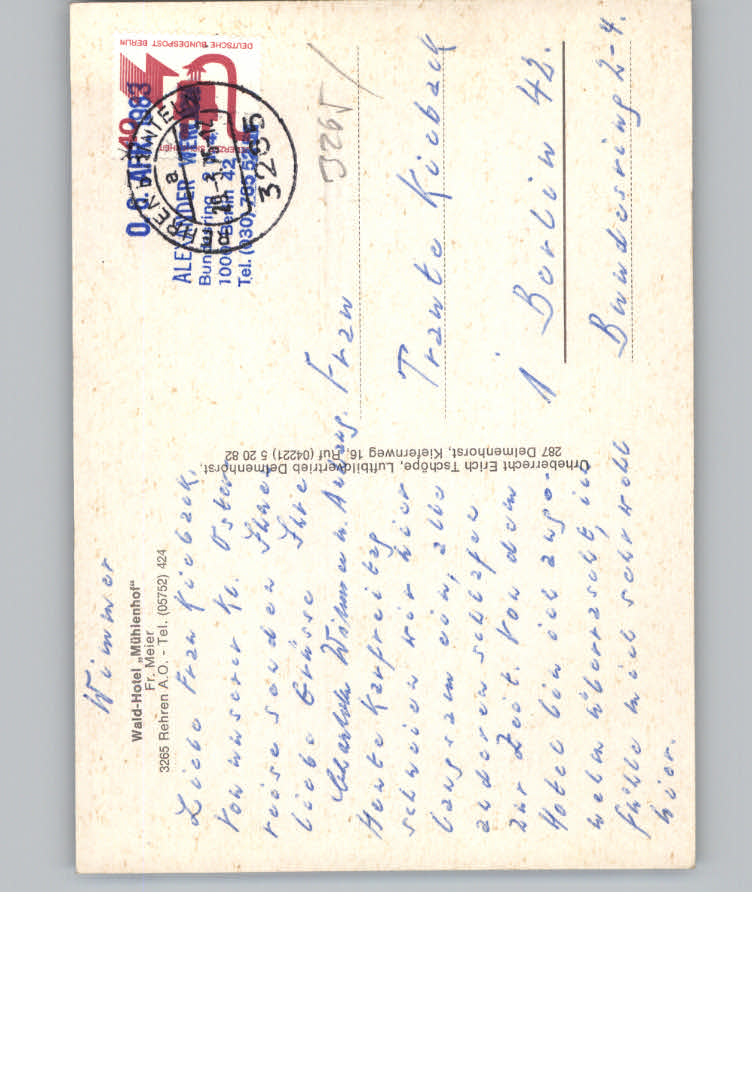 Wimmer
Wald-Hotel „Mühlenhof“
Fr. Meier
3265 Rehren A.O. - Tel. (05752) 424
Liebe Frau Kieback,
Von unserer kl. Oster-
reise senden Ihnen
liebe Grüsse Ihre
Charlotte
Heute Karfreitag
schneien wir hier
langsam ein, alle
anderen schlafen
zur Zeit. Von dem
Hotel bin ich ange-
nehm überrascht, ich
fühle mich sehr wohl
hier.
Urheberrecht Erich Tschöpe, Luftbildvertrieb Delmenhorst,
287 Delmenhorst, Kiefernweg 16, Ruf (04221) 5 20 82
DEUTSCHE BUNDESPOST BERLIN
40
3265
0 6. APR. 1983
Bundesring 2
1000 Berlin 42
Tel. (030) 785 52
3265
Frau
Traute Kieback
1 Berlin 42.
Bundesring 2-4.